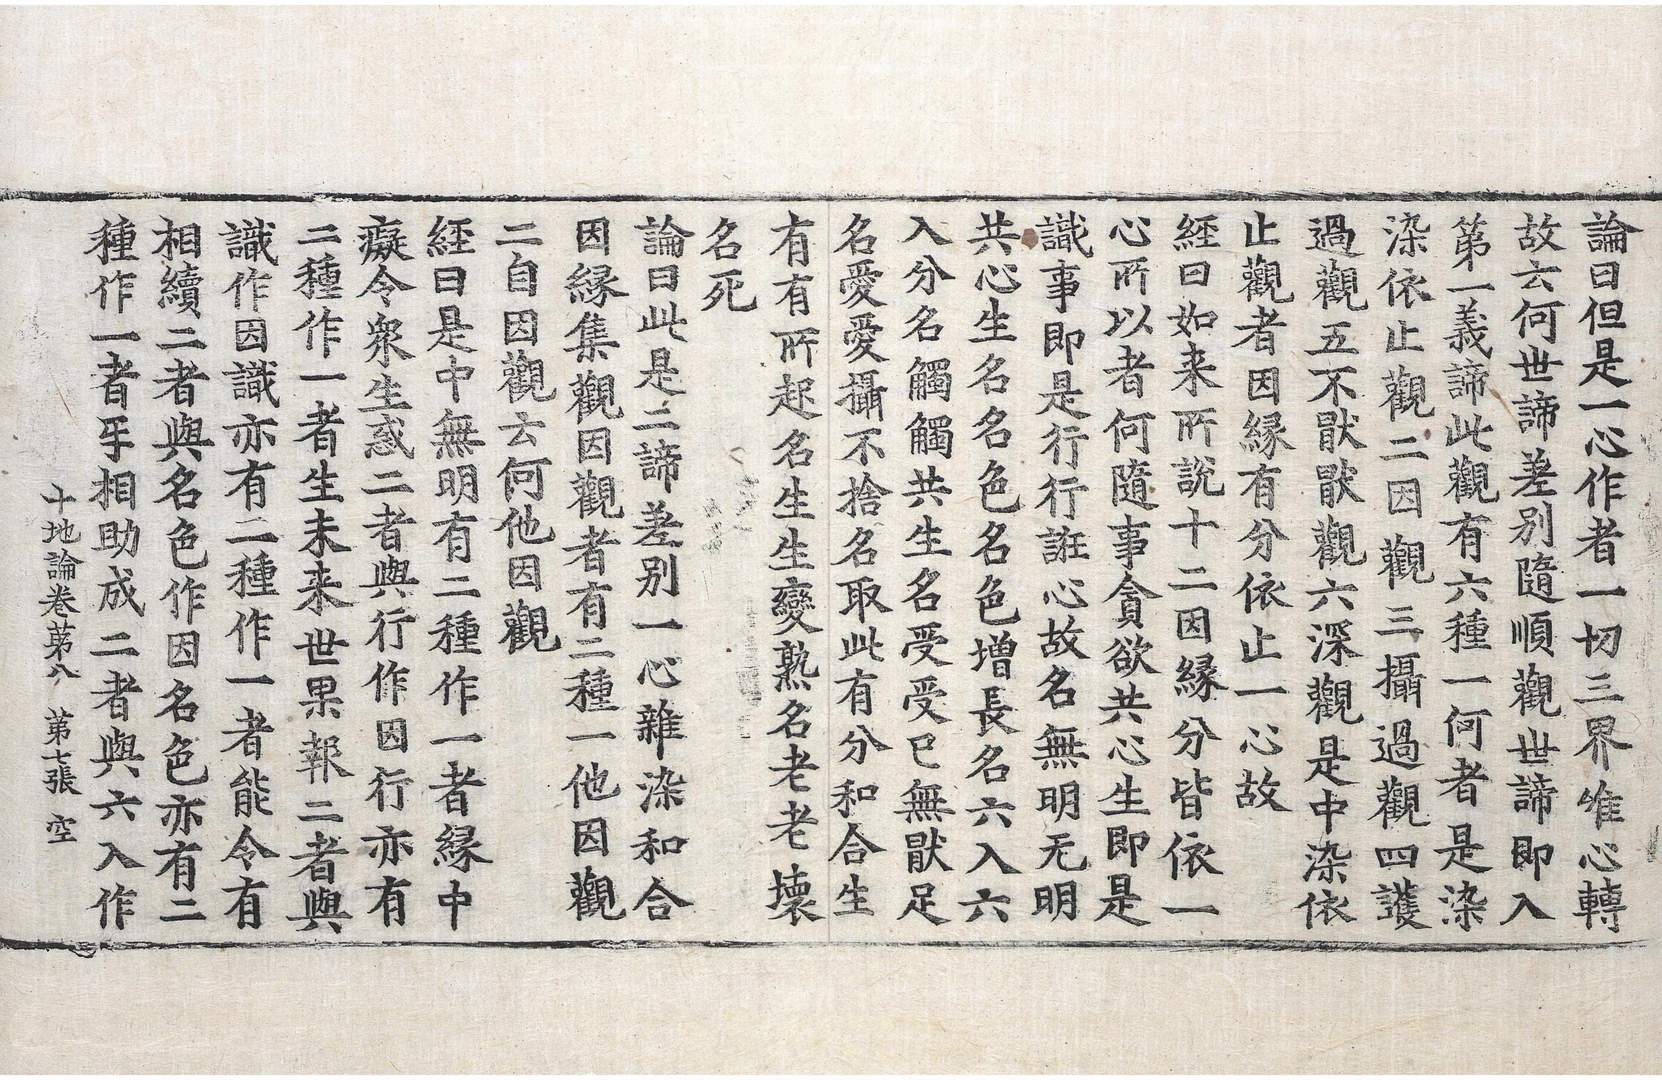 論曰但是一心作者一切三界唯心轉
故云何世諦差別隨順觀世諦即入
第一義諦此觀有六種一何者是染
染依止觀二因觀三攝過觀四護
過觀五不猒猒觀六深觀是中染依
止觀者因縁有分依止一心故
経曰如来所說十二因縁分皆依一
心所以者何隨事貪欲共心生即是
識事即是行行誑心故名無明无明
共心生名名色名色增長名六入六
入分名觸觸共生名受受已無猒足
名愛愛攝不捨名取此有分和合生
有有所起名生生變熟名老老壞
名死
論曰此是二諦差別一心雜染和合
因縁集觀因觀者有二種一他因觀
二自因觀云何他因觀
経曰是中無明有二種作一者縁中
癡令衆生惑二者與行作因行亦有
二種作一者生未来世果報二者與
識作因識亦有二種作一者能令有
相續二者與名色作因名色亦有二
種作一者㸦相助成二者與六入作
十地論卷第八 第七張 空